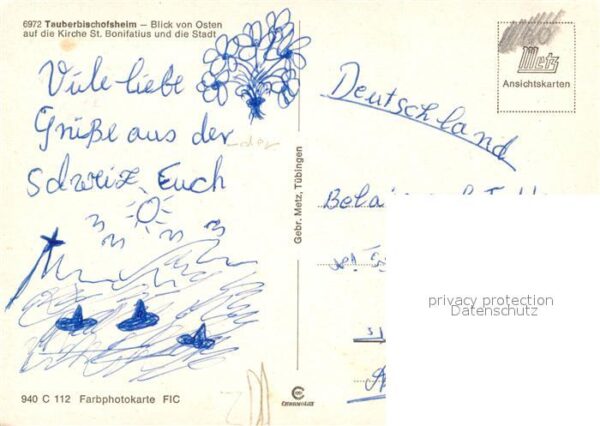 6972 Tauberbischofsheim – Blick von Osten
auf die Kirche St. Bonifatius und die Stadt
Viele liebe
Grüße aus der
Schweiz Euch
Gebr. Metz, Tübingen
Metz
Ansichtskarten
Deutschland
privacy protection
Datenschutz
940 C 112 Farbphotokarte FIC